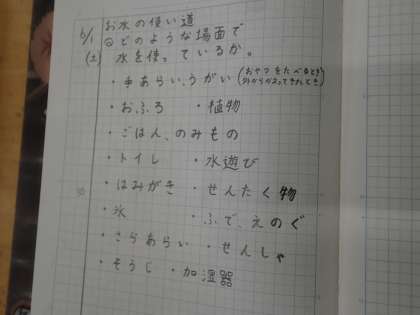 6/1 お水の使い道
(土) ◎どのような場面で
水を使っているか。
・手あらい、うがい(おやつをたべるとき 外からかえってきたとき)
・おふろ ・植物
・ごはん、のみもの
・トイレ ・水遊び
・はみがき ・せんたく物
・氷 ・ふで、えのぐ
・さらあらい ・せんしゃ
・そうじ ・加湿器